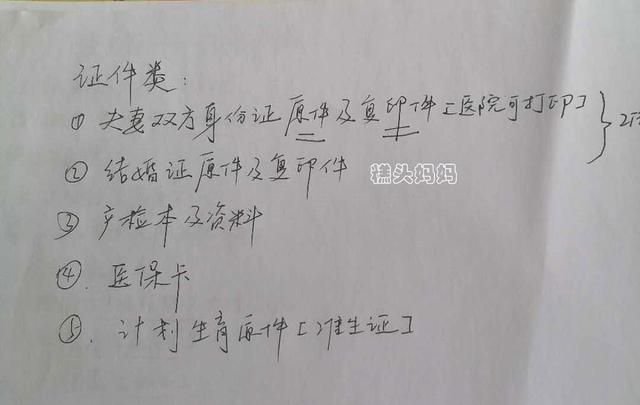 证件类：
① 夫妻双方身份证原件及复印件[医院可打印] } 2
② 结婚证原件及复印件
糕头妈妈
③ 产检本及资料
④. 医保卡
⑤. 计划生育原件[准生证]